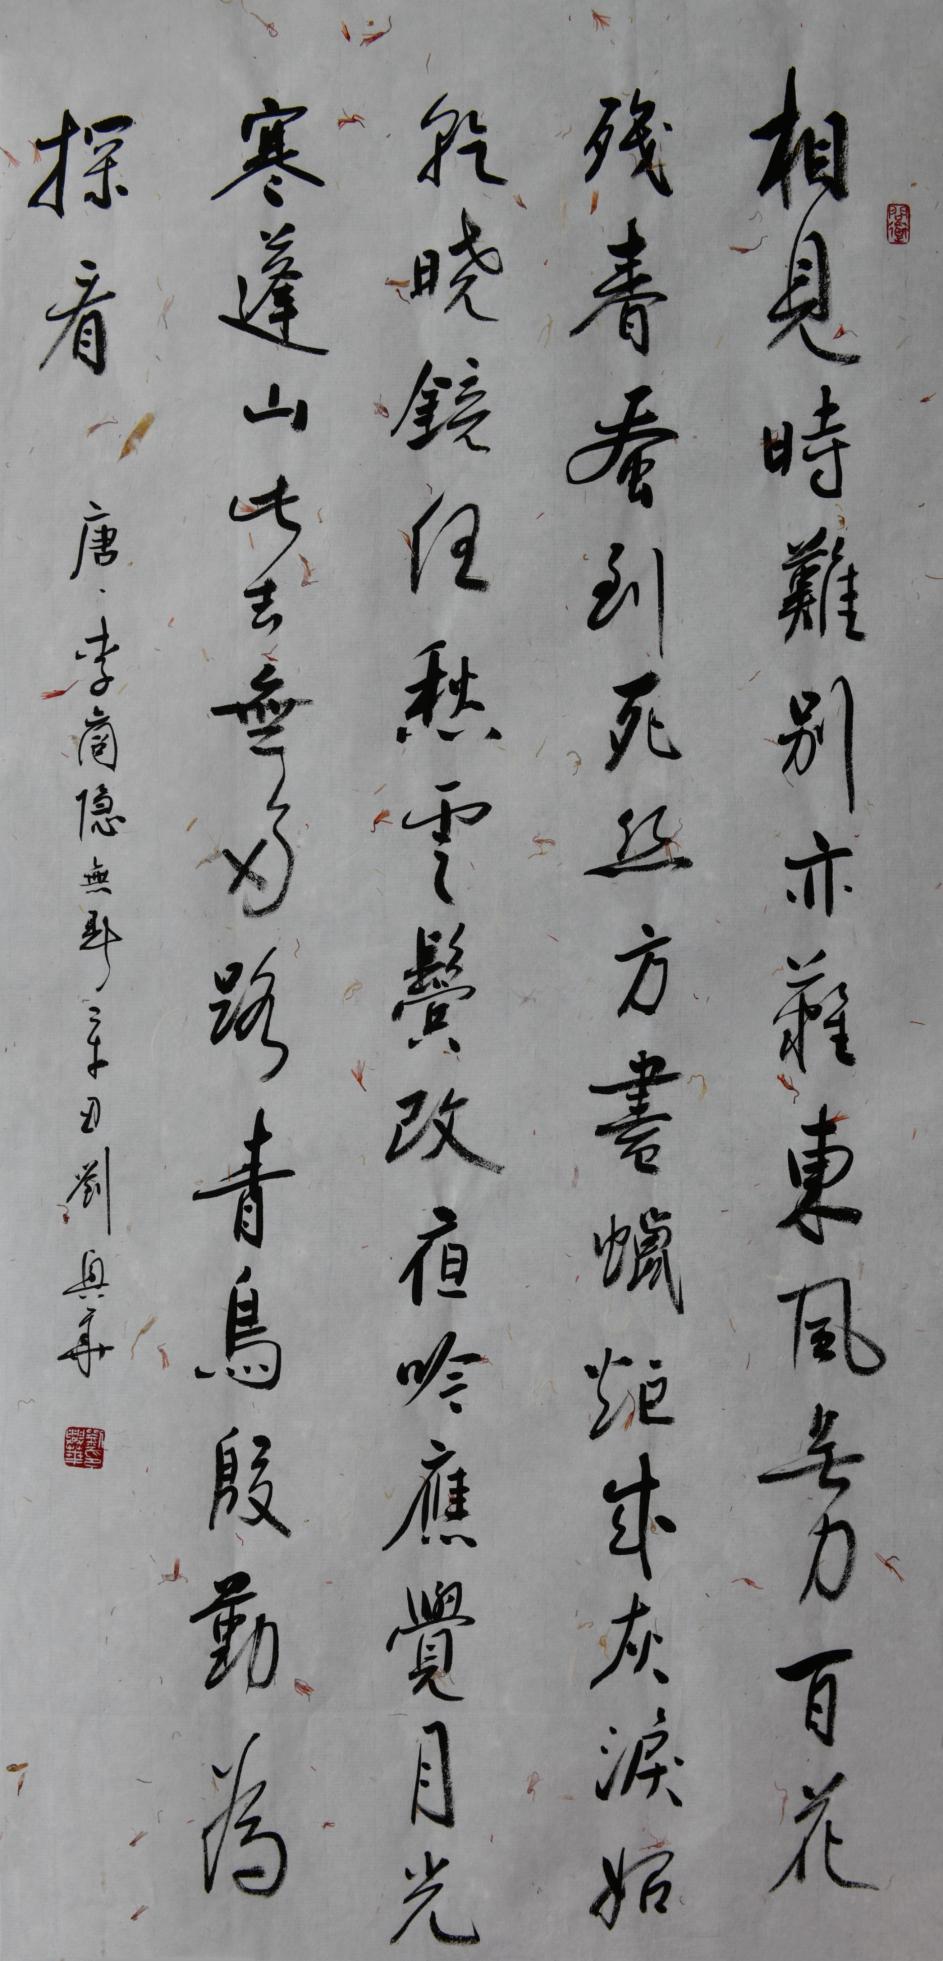 相見時難别亦難東風無力百花
殘春蚕到死丝方盡蠟炬成灰淚始
乾曉鏡但愁雲鬢改夜吟應覺月光
寒蓬山此去無多路青鳥殷勤為
探看
唐·李商隐無題辛丑劉興華